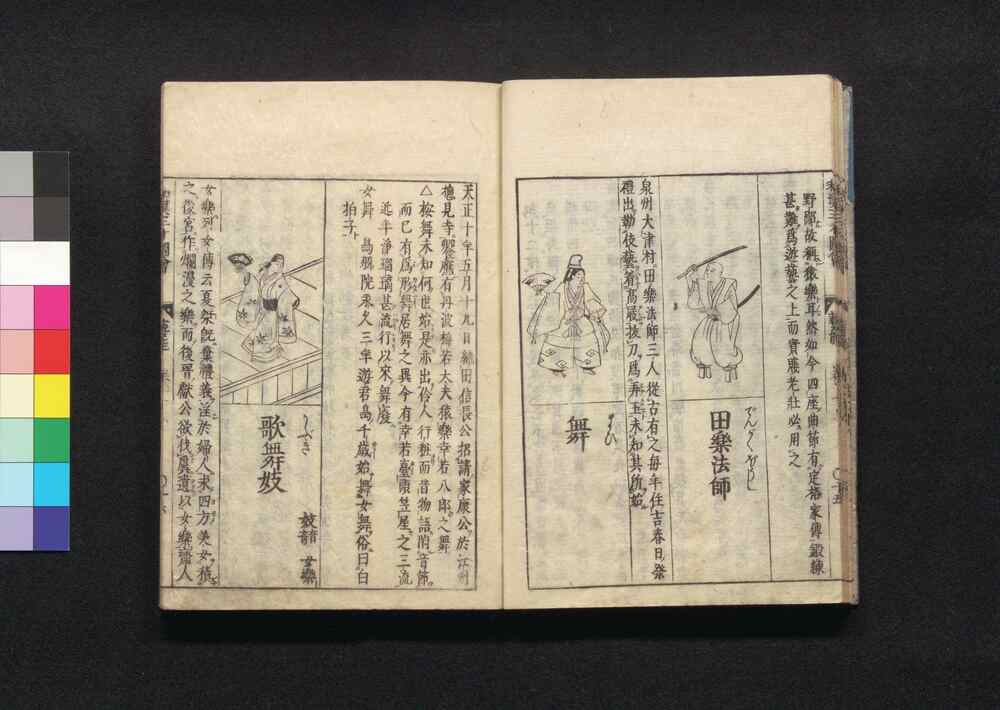 野郎故稱猿樂耳然如今四座曲節有定格家傳鍛練
甚難爲遊藝之上而貴賤老壯必用之
でんがくほうし
田樂法師
泉州大津村田樂法師三人從古有之毎年住吉春日祭
禮出勤使藝有高最拔刀爲弄玉未知其所始
まひ
舞
天正十年五月十九日織田信長公招請家康公於江州
摠見寺饗應有丹波梅若大夫猿樂幸若八郎之舞
△按舞未知何世始是亦出伶人行粧而昔物語附音節
而已有爲形與居舞之異今有幸若臺頭笠屋之三流
近年淨瑠璃甚流行以來舞廢
女舞 鳥羽院永久三年遊君島千歳始舞女舞俗曰白
拍子
かぶき
歌舞妓
妓 音 女樂
女樂列女傳云夏桀既棄禮義淫於婦人求四方美女積
之後宮作爛漫之樂而後晋獻公欲伐虞遺以女樂